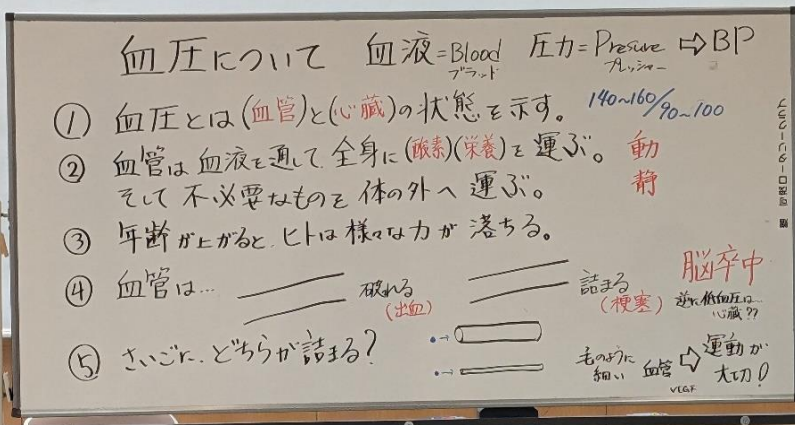 血圧について 血液=Blood 圧力=Presure ⇨BP
ブラッド プレッシャー
① 血圧とは(血管)と(心臓)の状態を示す。 140~160/90~100
② 血管は血液を通して、全身に(酸素)(栄養)を運ぶ。 動
そして不必要なものを体の外へ運ぶ。 静
③ 年齢が上がると、ヒトは様々な力が落ちる。
④ 血管は… 破れる 詰まる 脳卒中
(出血) (梗塞) 逆に低血圧は…
心臓??
⑤ さいごに、どちらが詰まる?
毛のように 血管 ⇨ 運動が
細い VEGF 大切!
ロータリークラブ